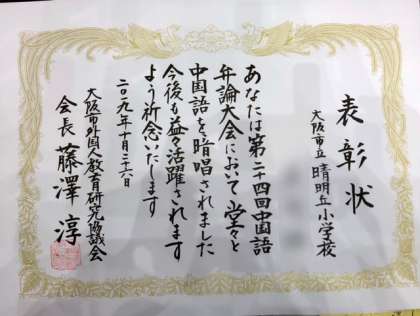 表彰状
大阪市立 晴明丘小学校
あなたは第二十四回中国語
弁論大会において堂々と
中国語を暗唱されました
今後も益々活躍されます
よう祈念いたします
二〇一九年十月二十六日
大阪市外国人教育研究協議会
会長 藤澤 淳